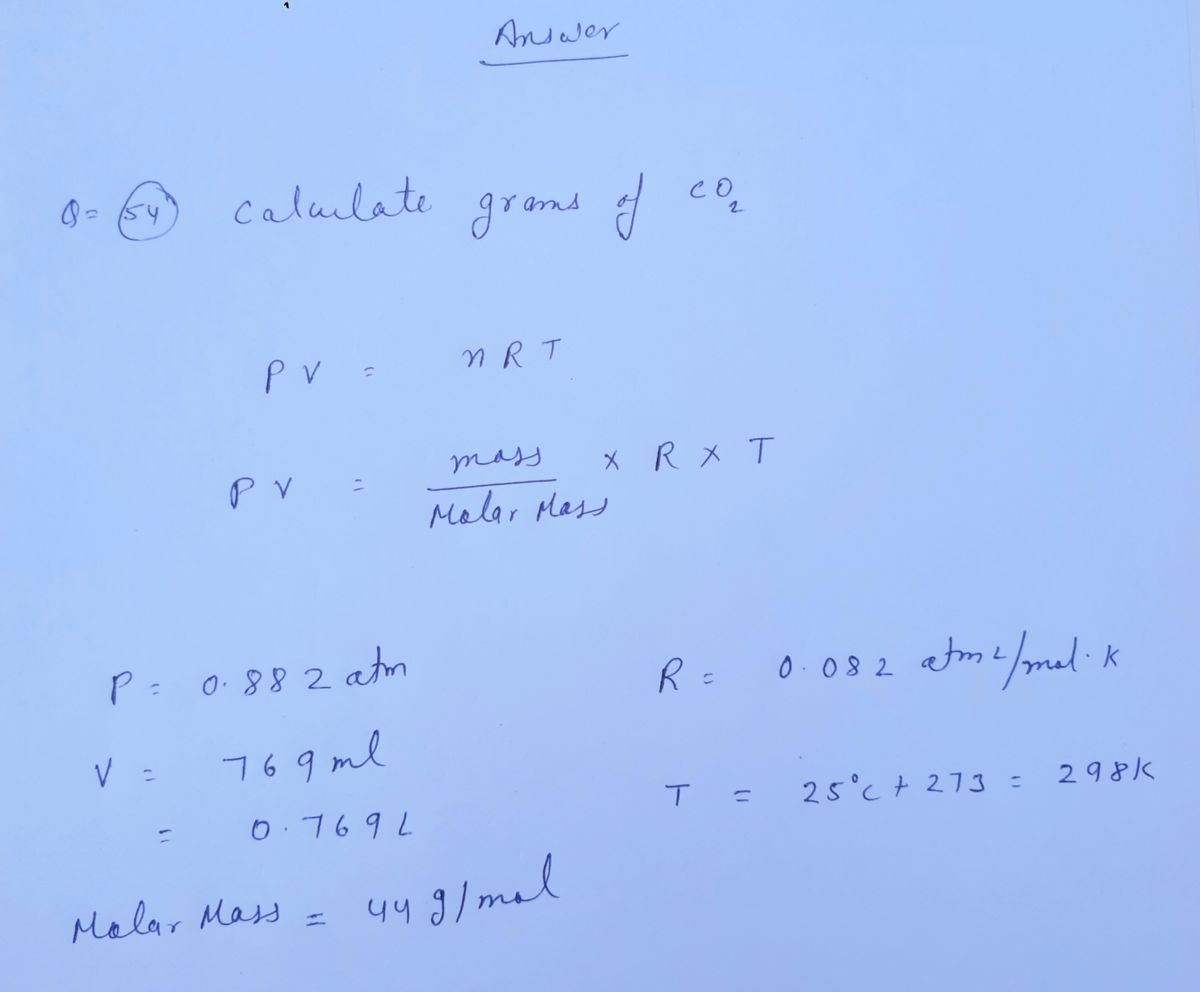 Answer
Q= 54 calculate grams of CO₂
PV = nRT
PV = mass / Molar Mass × R × T
P = 0.882 atm
R = 0.082 atm L/mol. K
V = 769 ml
= 0.769 L
T = 25°C + 273 = 298K
Molar Mass = 44 g/mol